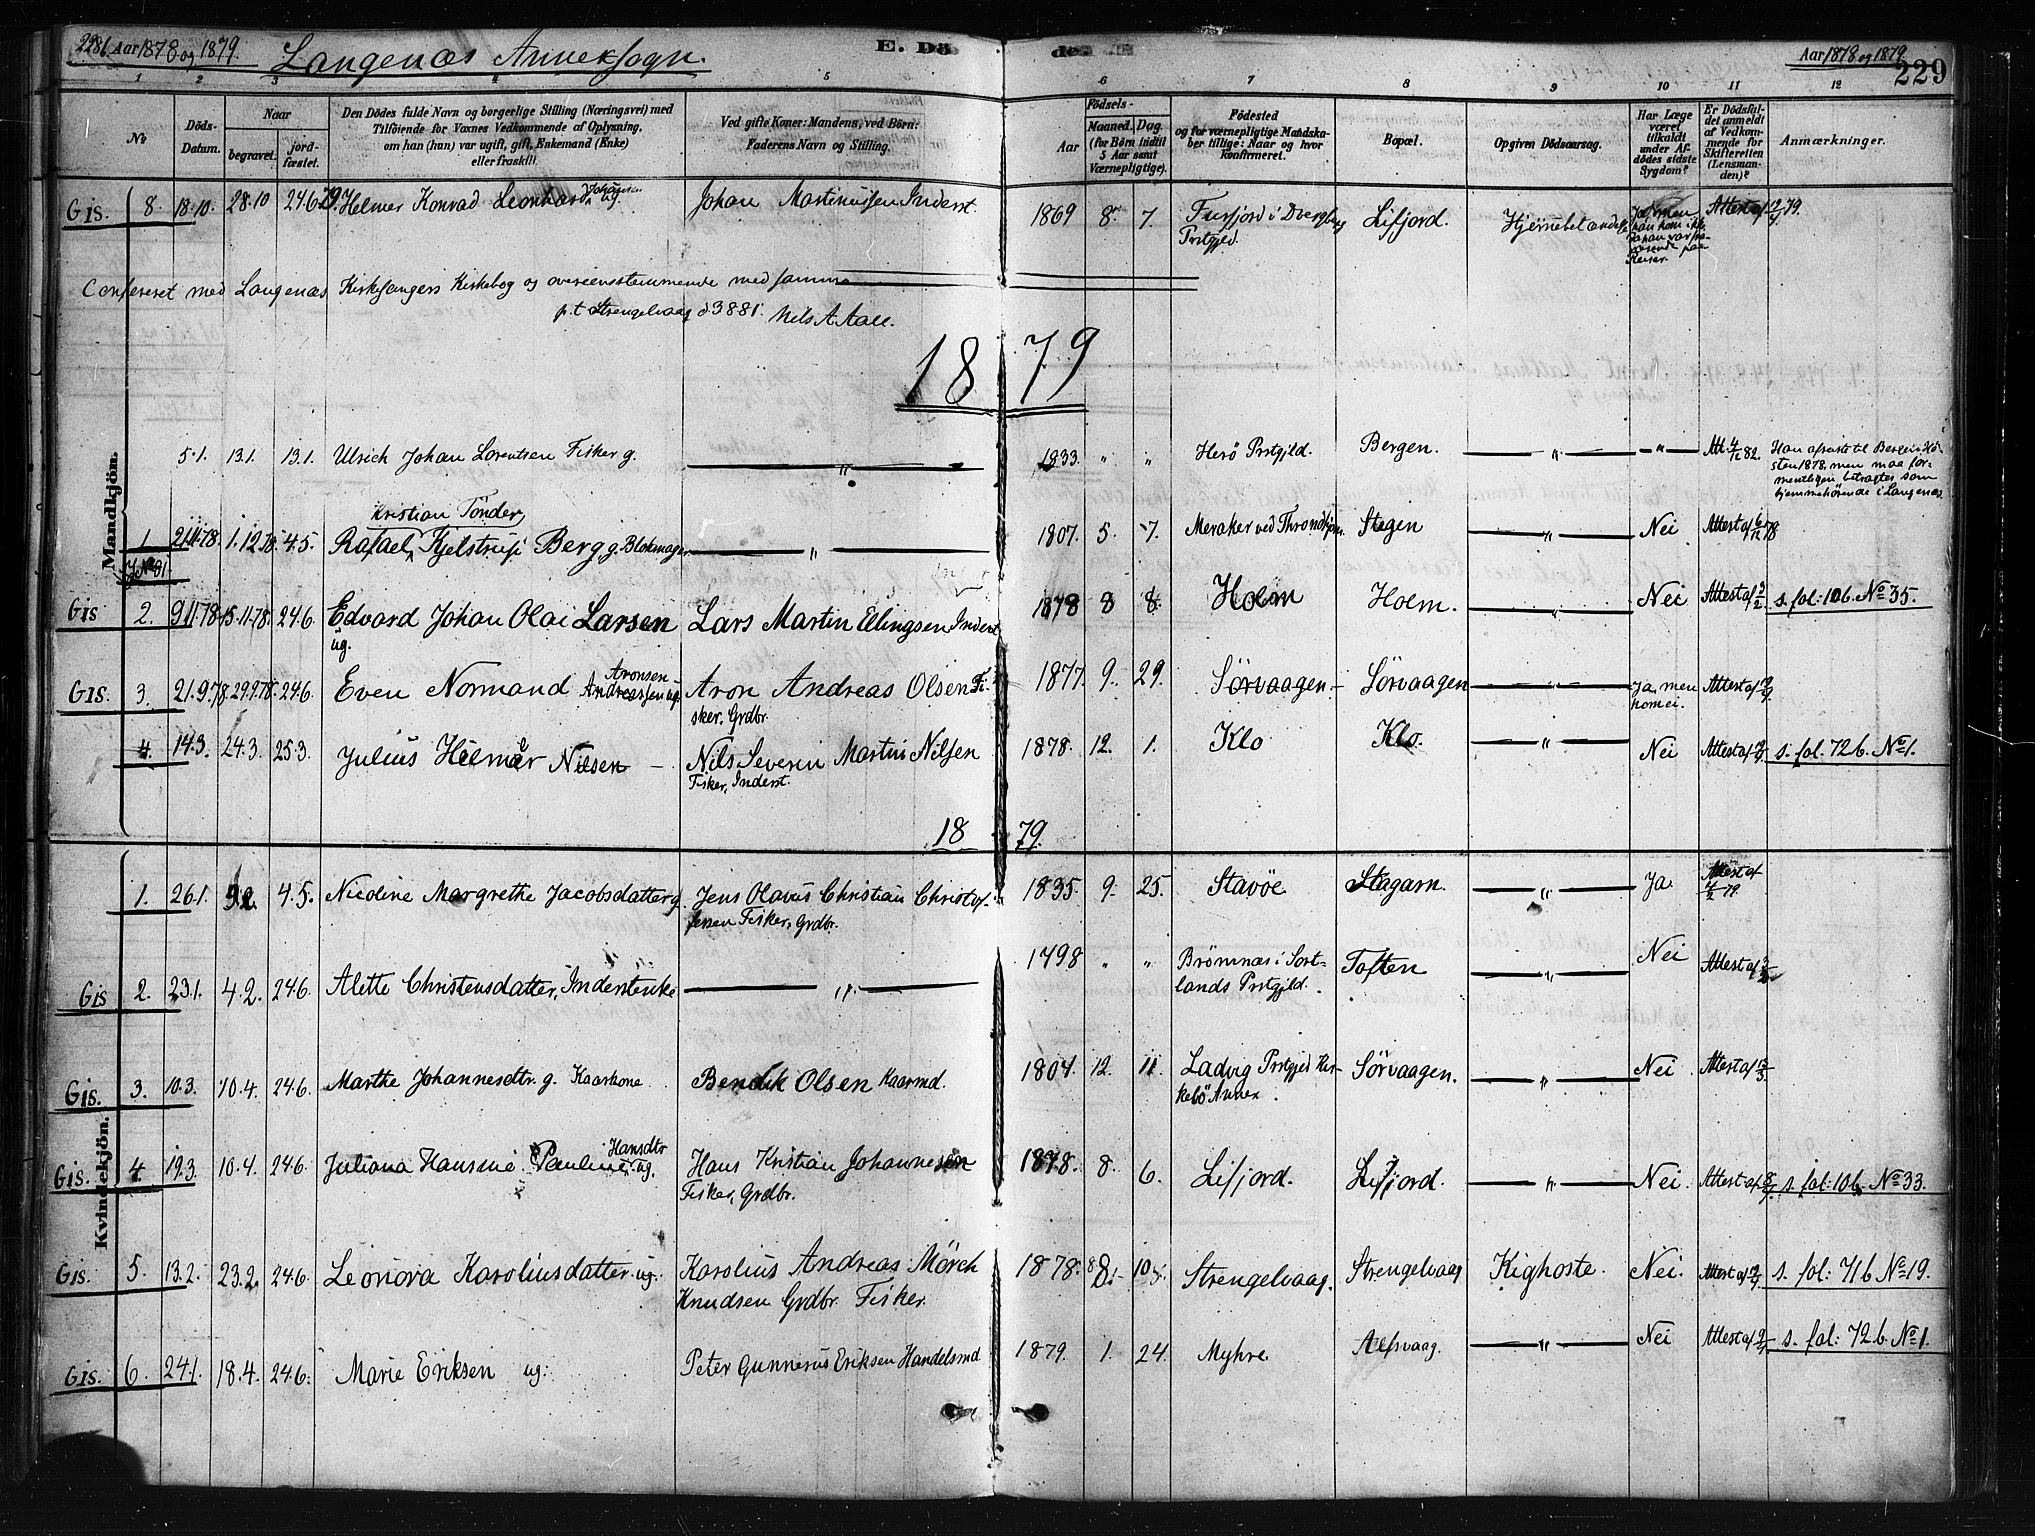 228b Aar 1878 og 1879. Langenæs Annekssogn. E. Dö de. Aar 1878 og 1879 229
1 2 3 4 5 6 7 8 9 10 11 12
No
Döds-Datum.
Naar
begravet.
jord-fæstet.
Den Dödes fulde Navn og borgerlige Stilling (Næringsvei) med
Tilföiende for Voxnes Vedkommende af Oplysning,
om han (hun) var ugift, gift, Enkemand (Enke)
eller fraskilt.
Ved gifte Koner: Mandens, ved Börn:
Faderens Navn og Stilling.
Födsels-
Aar
Maaned. Dag.
(for Börn indtil
5 Aar samt
Værnepligtige).
Födested
og for værnepligtige Mandska-
ber tillige: Naar og hvor
konfirmeret.
Bopæl.
Opgiven Dödsaarsag.
Har Læge
været
tilkaldt
under Af-
dödes sidste
Sygdom?
Er Dödsfal-
det anmeldt
af Vedkom-
mende for
Skifteretten
(Lensman-
den)?
Anmærkninger.
Gis. 8. 18.10. 28.10 24.6.79. Helmer Konrad Leonhard Johansen ug. Johan Martinussen Inderst. 1869 8. 7. Fursjord i Dvergberg Prstgjld. Lifjord. Hjernebetændelse Ja, men han kom ikke, Attest af 79.
Confereret med Langenæs Kirkesangers Kirkebog og overeensstemmende med samme
p.t. Strengelvaag d 3 8 81. Nils A Aall.
1879
Mandkjön.
5.1. 13.1. 13.1. Ulrich Johan Lorentsen Fisker g. — " — 1833. " " Herö Prstgjld. Bergen. — " — — " — Att. 82. Han afreiste til Bergen Hö-
sten 1878, men maa for-
mentligen betragtes som
hjemmehörende i Langenæs.
Kristian Tönder
1 21.11.78. 1.12.78. 4.5. Rafael Kjelstrup Berg g. Blokmager — " — 1807. 5. 7. Meraker ved Throndhjem Stegen — " — Nei Attest af 6/12 78
Gis 2. 9.11.78. 15.11.78. 24.6. Edvard Johan Olai Larsen Lars Martin Ellingsen Inderst 1878 8 8. Holm Holm. — " — Nei Attest af s. fol: 10b. No 35.
ug.
Gis. 3. 21.9.78. 29.9.78. 24.6. Even Normand Aronsen Andreassen ug. Aron Andreas Olsen Fi- 1877. 9. 29. Sörvaagen — Sörvaagen — " — Ja, men Attest af
sker. Grdbr. kom ei.
4. 14.3. 24.3. 25.3. Julius Hilmar Nilsen — Nils Severin Martin Nilsen 1878. 12. 1. Klo Klo. — " — Nei Attest af s. fol: 72b. No 1.
Fisker, Inderst.
1879.
Kvindekjön.
1. 26.1. 9.2. 4.5. Nicoline Margrethe Jacobsdatter g. Jens Olavus Christian Christof- 1835. 9. 25. Stavöe Stagarn. — " — Ja. Attest af 79.
fersen Fisker, Grdbr.
Gis 2. 23.1. 4.2. 24.6. Alette Christensdatter, Inderstenke — " — 1798 " " Brömnæs i Sort-
lands Prstgjld. Toften — " — Nei Attest af
Gis. 3. 10.3. 10.4. 24.6. Marthe Johannesdtr. g. Kaarkone. Bendik Olsen Kaarmd. 1804. 12. 11. Ladvig Prstgjld Kir-
kebö Annex. Sörvaagen. — " — Nei Attest af
Gis. 4. 19.3. 10.4. 24.6. Juliana Hansine Pauline Hansdtr ug. Hans Kristian Johannesen 1878. 8. 6. Lifjord. Lifjord. — " — Nei. Attest af s. fol: 10b. No 33.
Fisker, Grdbr.
Gis. 5. 13.2. 23.2. 24.6. Leonora Karoliusdatter ug. Karolius Andreas Mörch 1878. 8. 10. Strengelvaag. Strengelvaag Kighoste. Nei. Attest af s. fol: 71b No 19.
Knudsen Grdbr. Fisker.
Gis. 6. 24.1. 18.4. 24.6. Marie Eriksen ug. Peter Gunnerus Eriksen Handelsmd. 1879. 1. 24. Myhre Alfsvaag. — " — Nei Attest af s. fol: 72b. No 1.